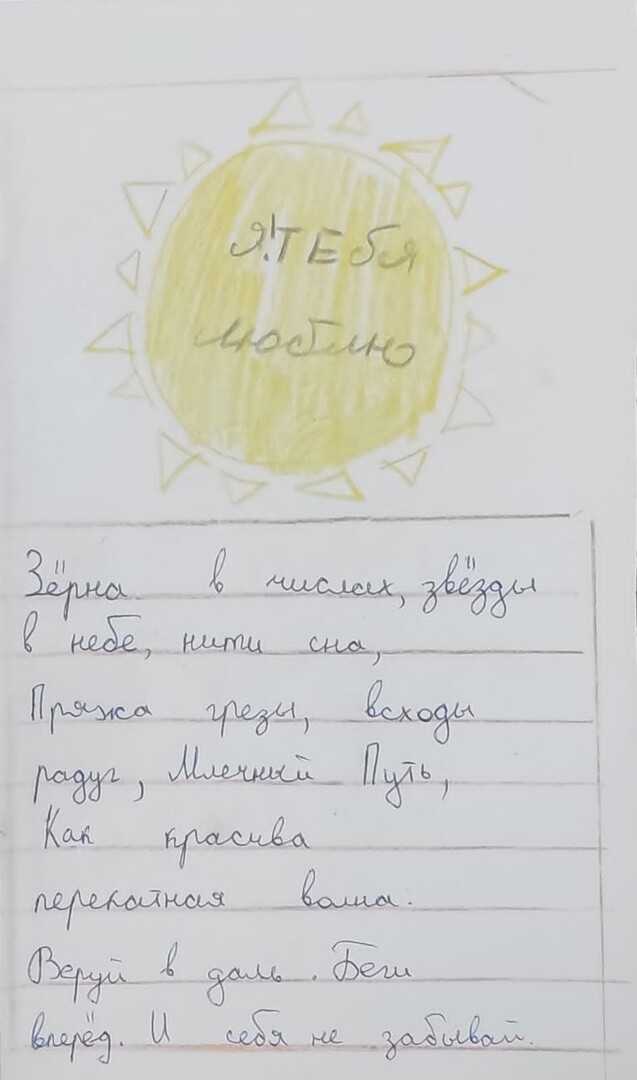 Я!ТЕбя
люблю
Зёрна в числах, звёзды
в небе, нити сна,
Пряжа грёзы, всходы
радуг, Млечный Путь,
Как красива
перекатная волна.
Веруй в даль. Беги
вперёд. И себя не забывай.